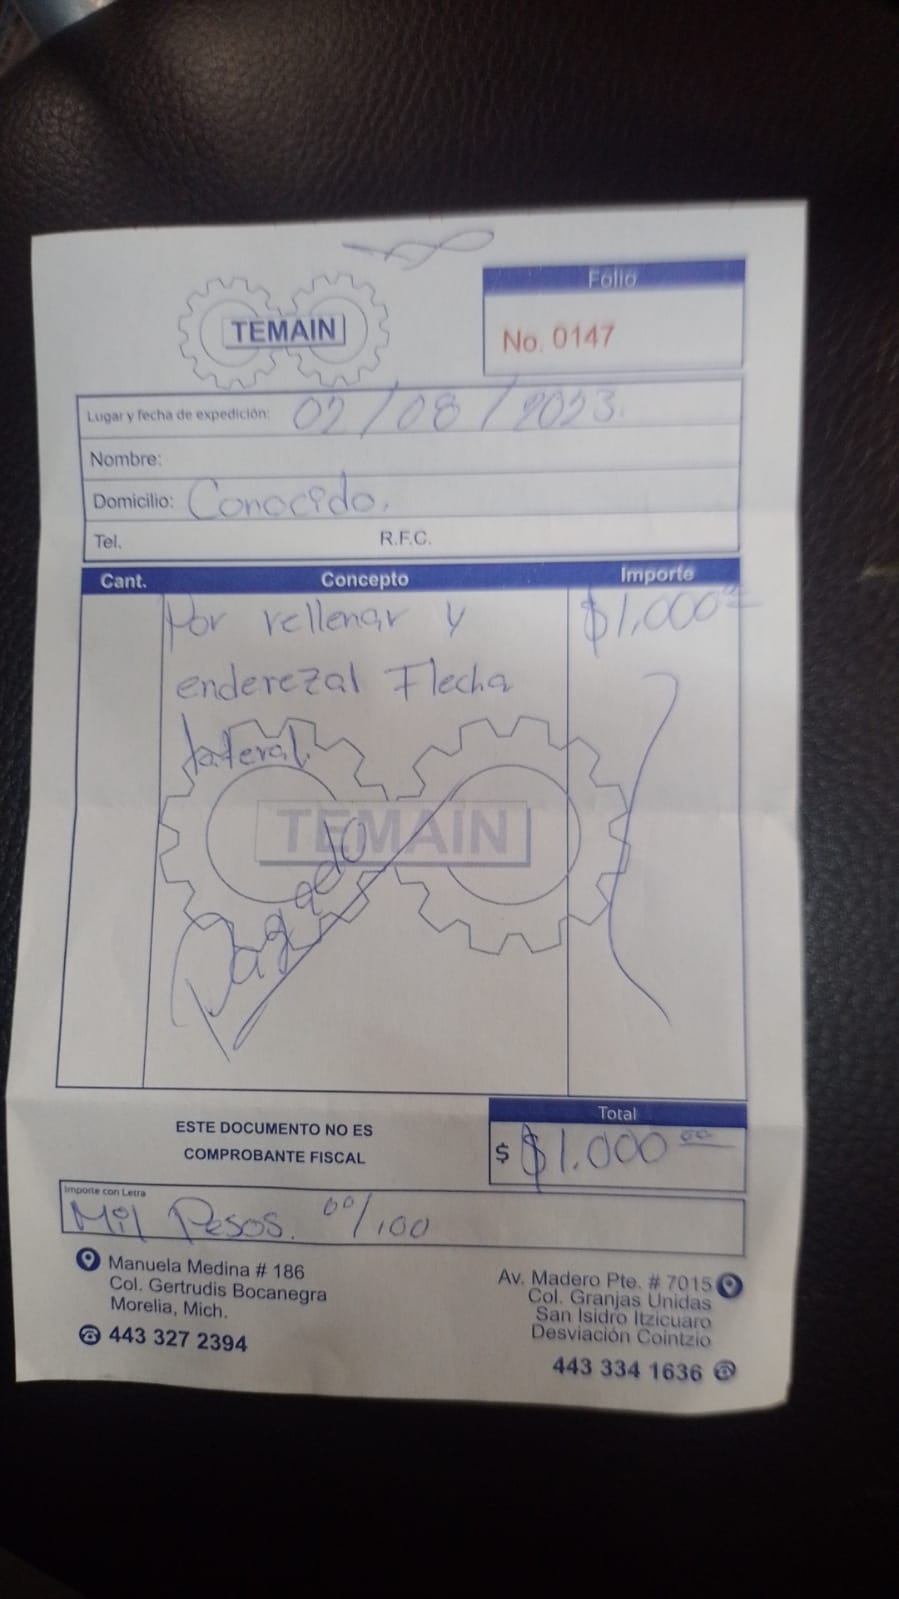 TEMAIN
Folio
No. 0147
Lugar y fecha de expedición: 02/08/2023.
Nombre:
Domicilio: Conocido.
Tel. R.F.C.
Cant. Concepto Importe
Por rellenar y $1,000.00
enderezal Flecha
lateral.
TEMAIN
Pagado
ESTE DOCUMENTO NO ES
COMPROBANTE FISCAL
Total
$ $1.000 00
Importe con Letra
Mil Pesos. 00/100
Manuela Medina # 186
Col. Gertrudis Bocanegra
Morelia, Mich.
443 327 2394
Av. Madero Pte. # 7015
Col. Granjas Unidas
San Isidro Itzicuaro
Desviación Cointzio
443 334 1636